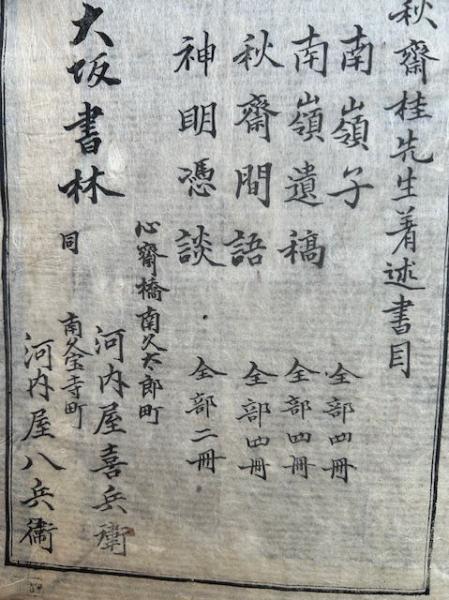 秋齋桂先生著述書目
南嶺子 全部四冊
南嶺遺稿 全部四冊
秋齋間語 全部四冊
神明憑談 全部二冊
大坂書林
心齋橋南久太郎町
河内屋喜兵衛
同 南久宝寺町
河内屋八兵衛